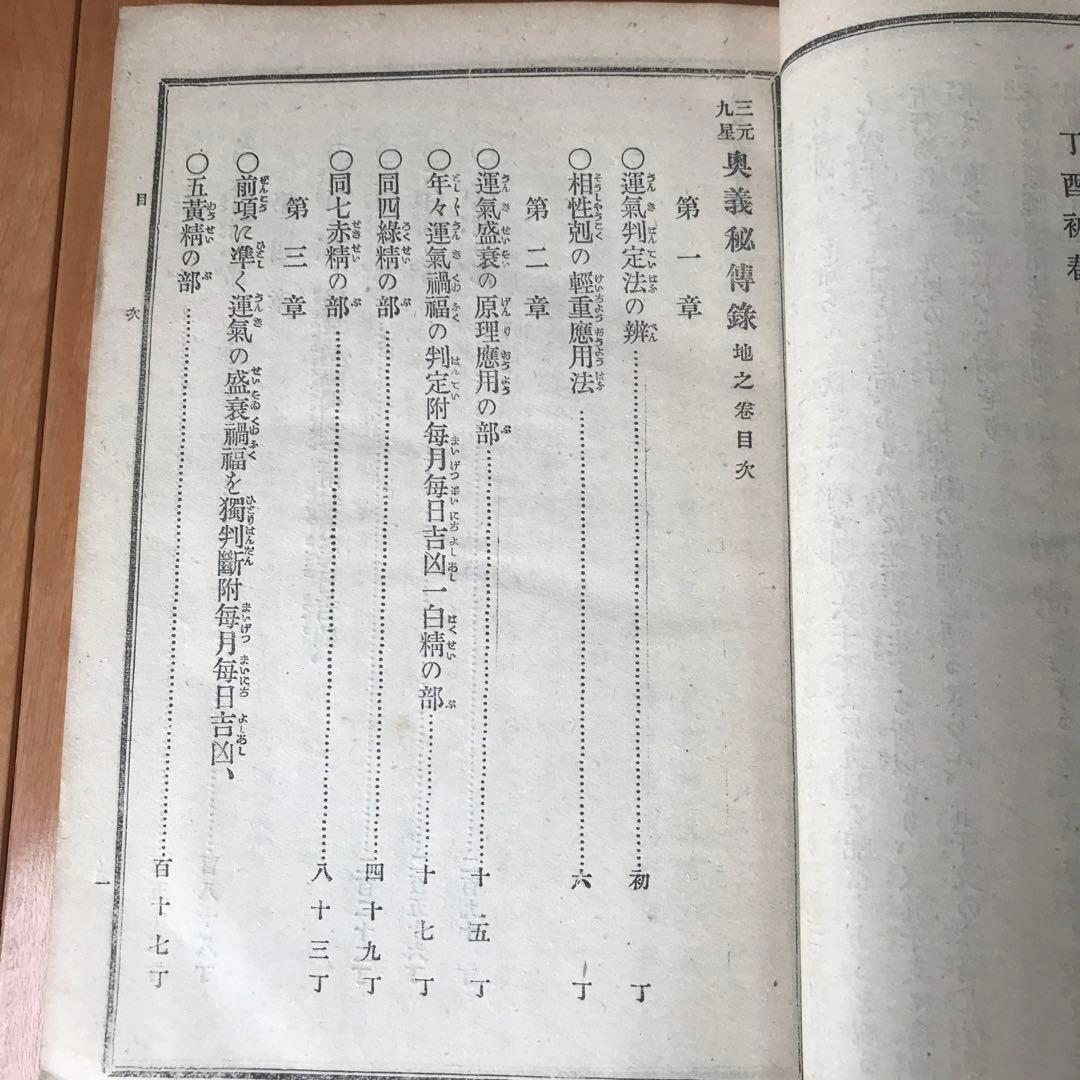 丁酉初春
三元九星 奧義秘傳錄 地之卷目次
第一章
〇運氣判定法の辨……初丁
〇相性剋の輕重應用法……六丁
第二章
〇運氣盛衰の原理應用の部……十五丁
〇年々運氣禍福の判定附每月每日吉凶一白精の部……十七丁
〇同四綠精の部……四十九丁
〇同七赤精の部……八十三丁
第三章
〇前項に準く運氣の盛衰禍福を獨判斷附每月每日吉凶、
〇五黃精の部……百十七丁
目次
一